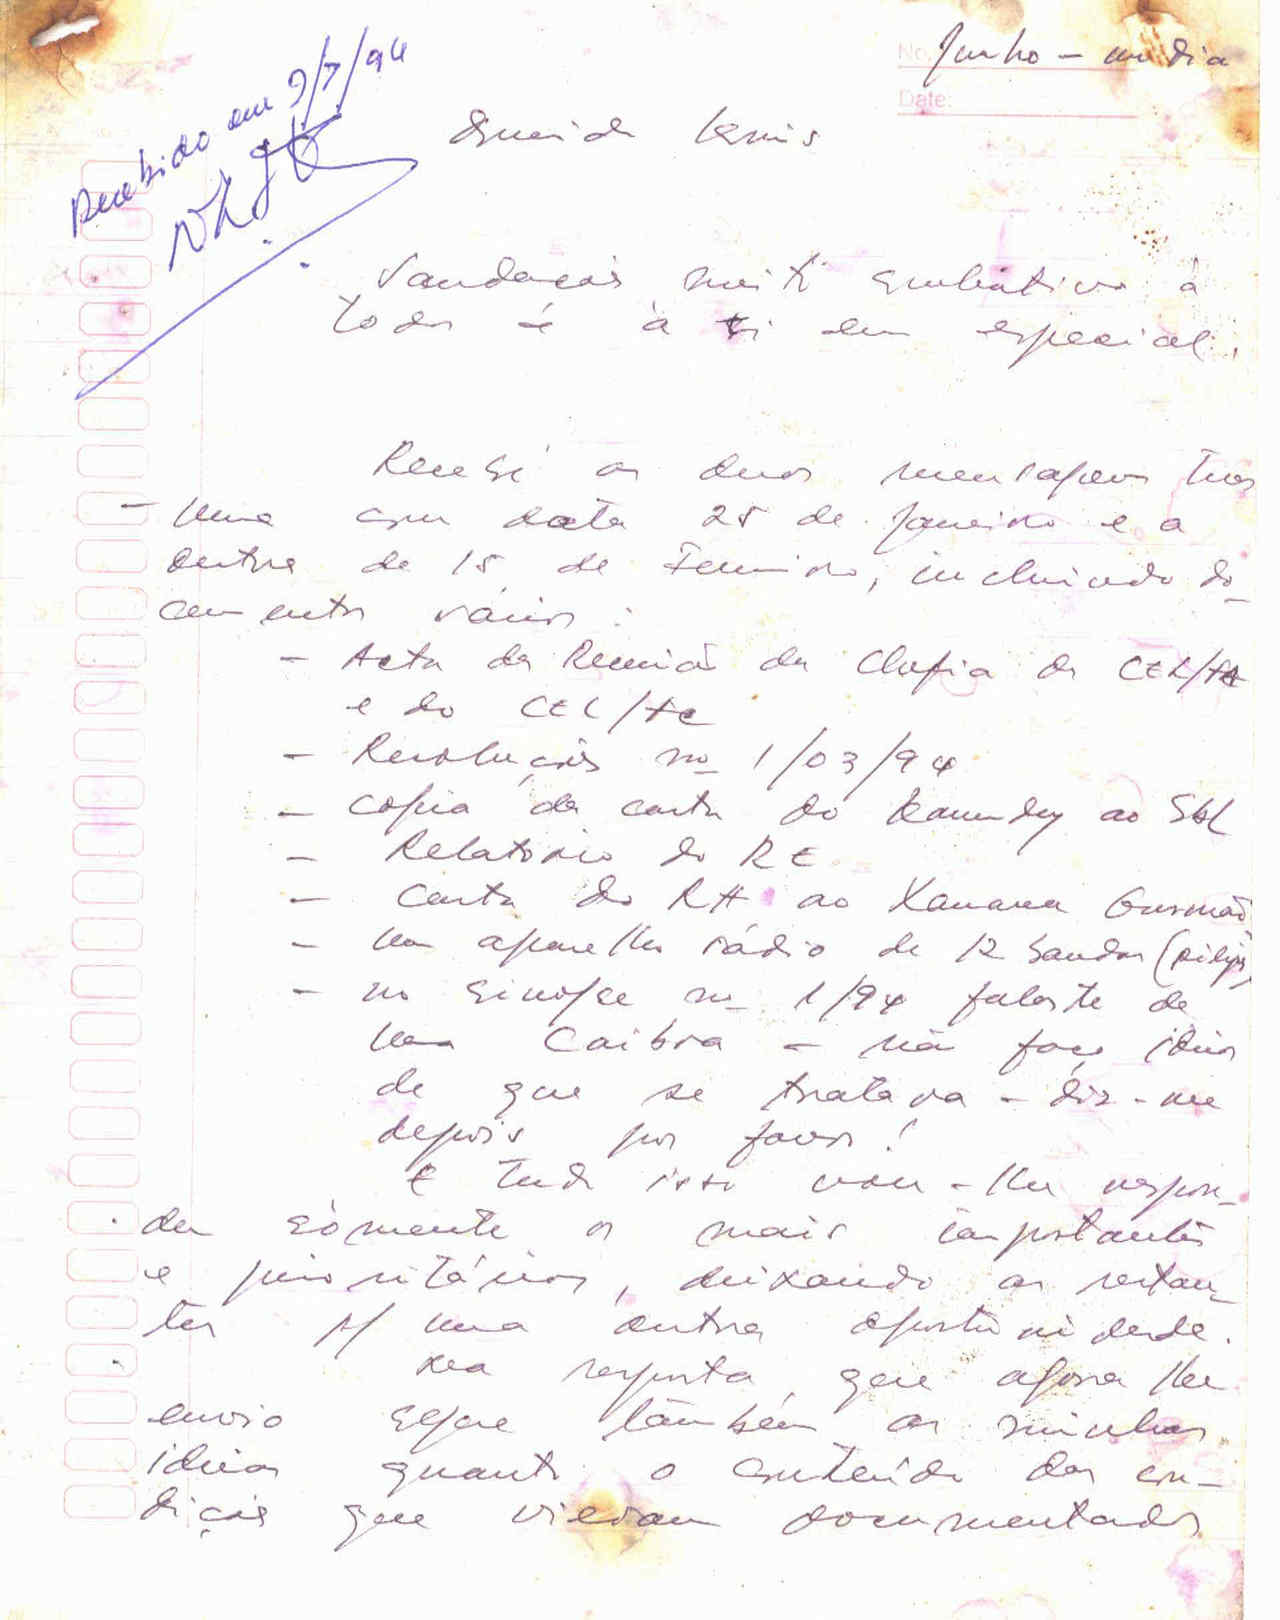 No. Junho - um dia
Date:
Recebido em 9/7/94
Querido
Saudações muito à
todos e à ti em especial.
Recebi as duas mensagens tuas
- Uma com data 25 de Janeiro e a
outra de 15 de Fevereiro, incluindo do-
cumentos vários:
- Acta da Reunião da Chefia da CEL/FC
e do CEL/FC
- Resoluções no 1/03/94
- Copia da carta do Ramudy ao
- Relatório do RE
- Carta do RH ao Xanana Gusmão
- Um aparelho rádio de 12 bandas
- no sinopse no 1/94 falaste de
uma Caibra - não faço ideia
de que se tratava - diz-me
depois por favor!
E tudo isso vou-lhe respon-
der sòmente os mais importantes
e prioritários, deixando as restan-
tes p/ uma outra oportunidade.
Na resposta que agora lhe
envio segue também as minhas
ideias quanto o conteúdo das con-
dições que vieram documentados